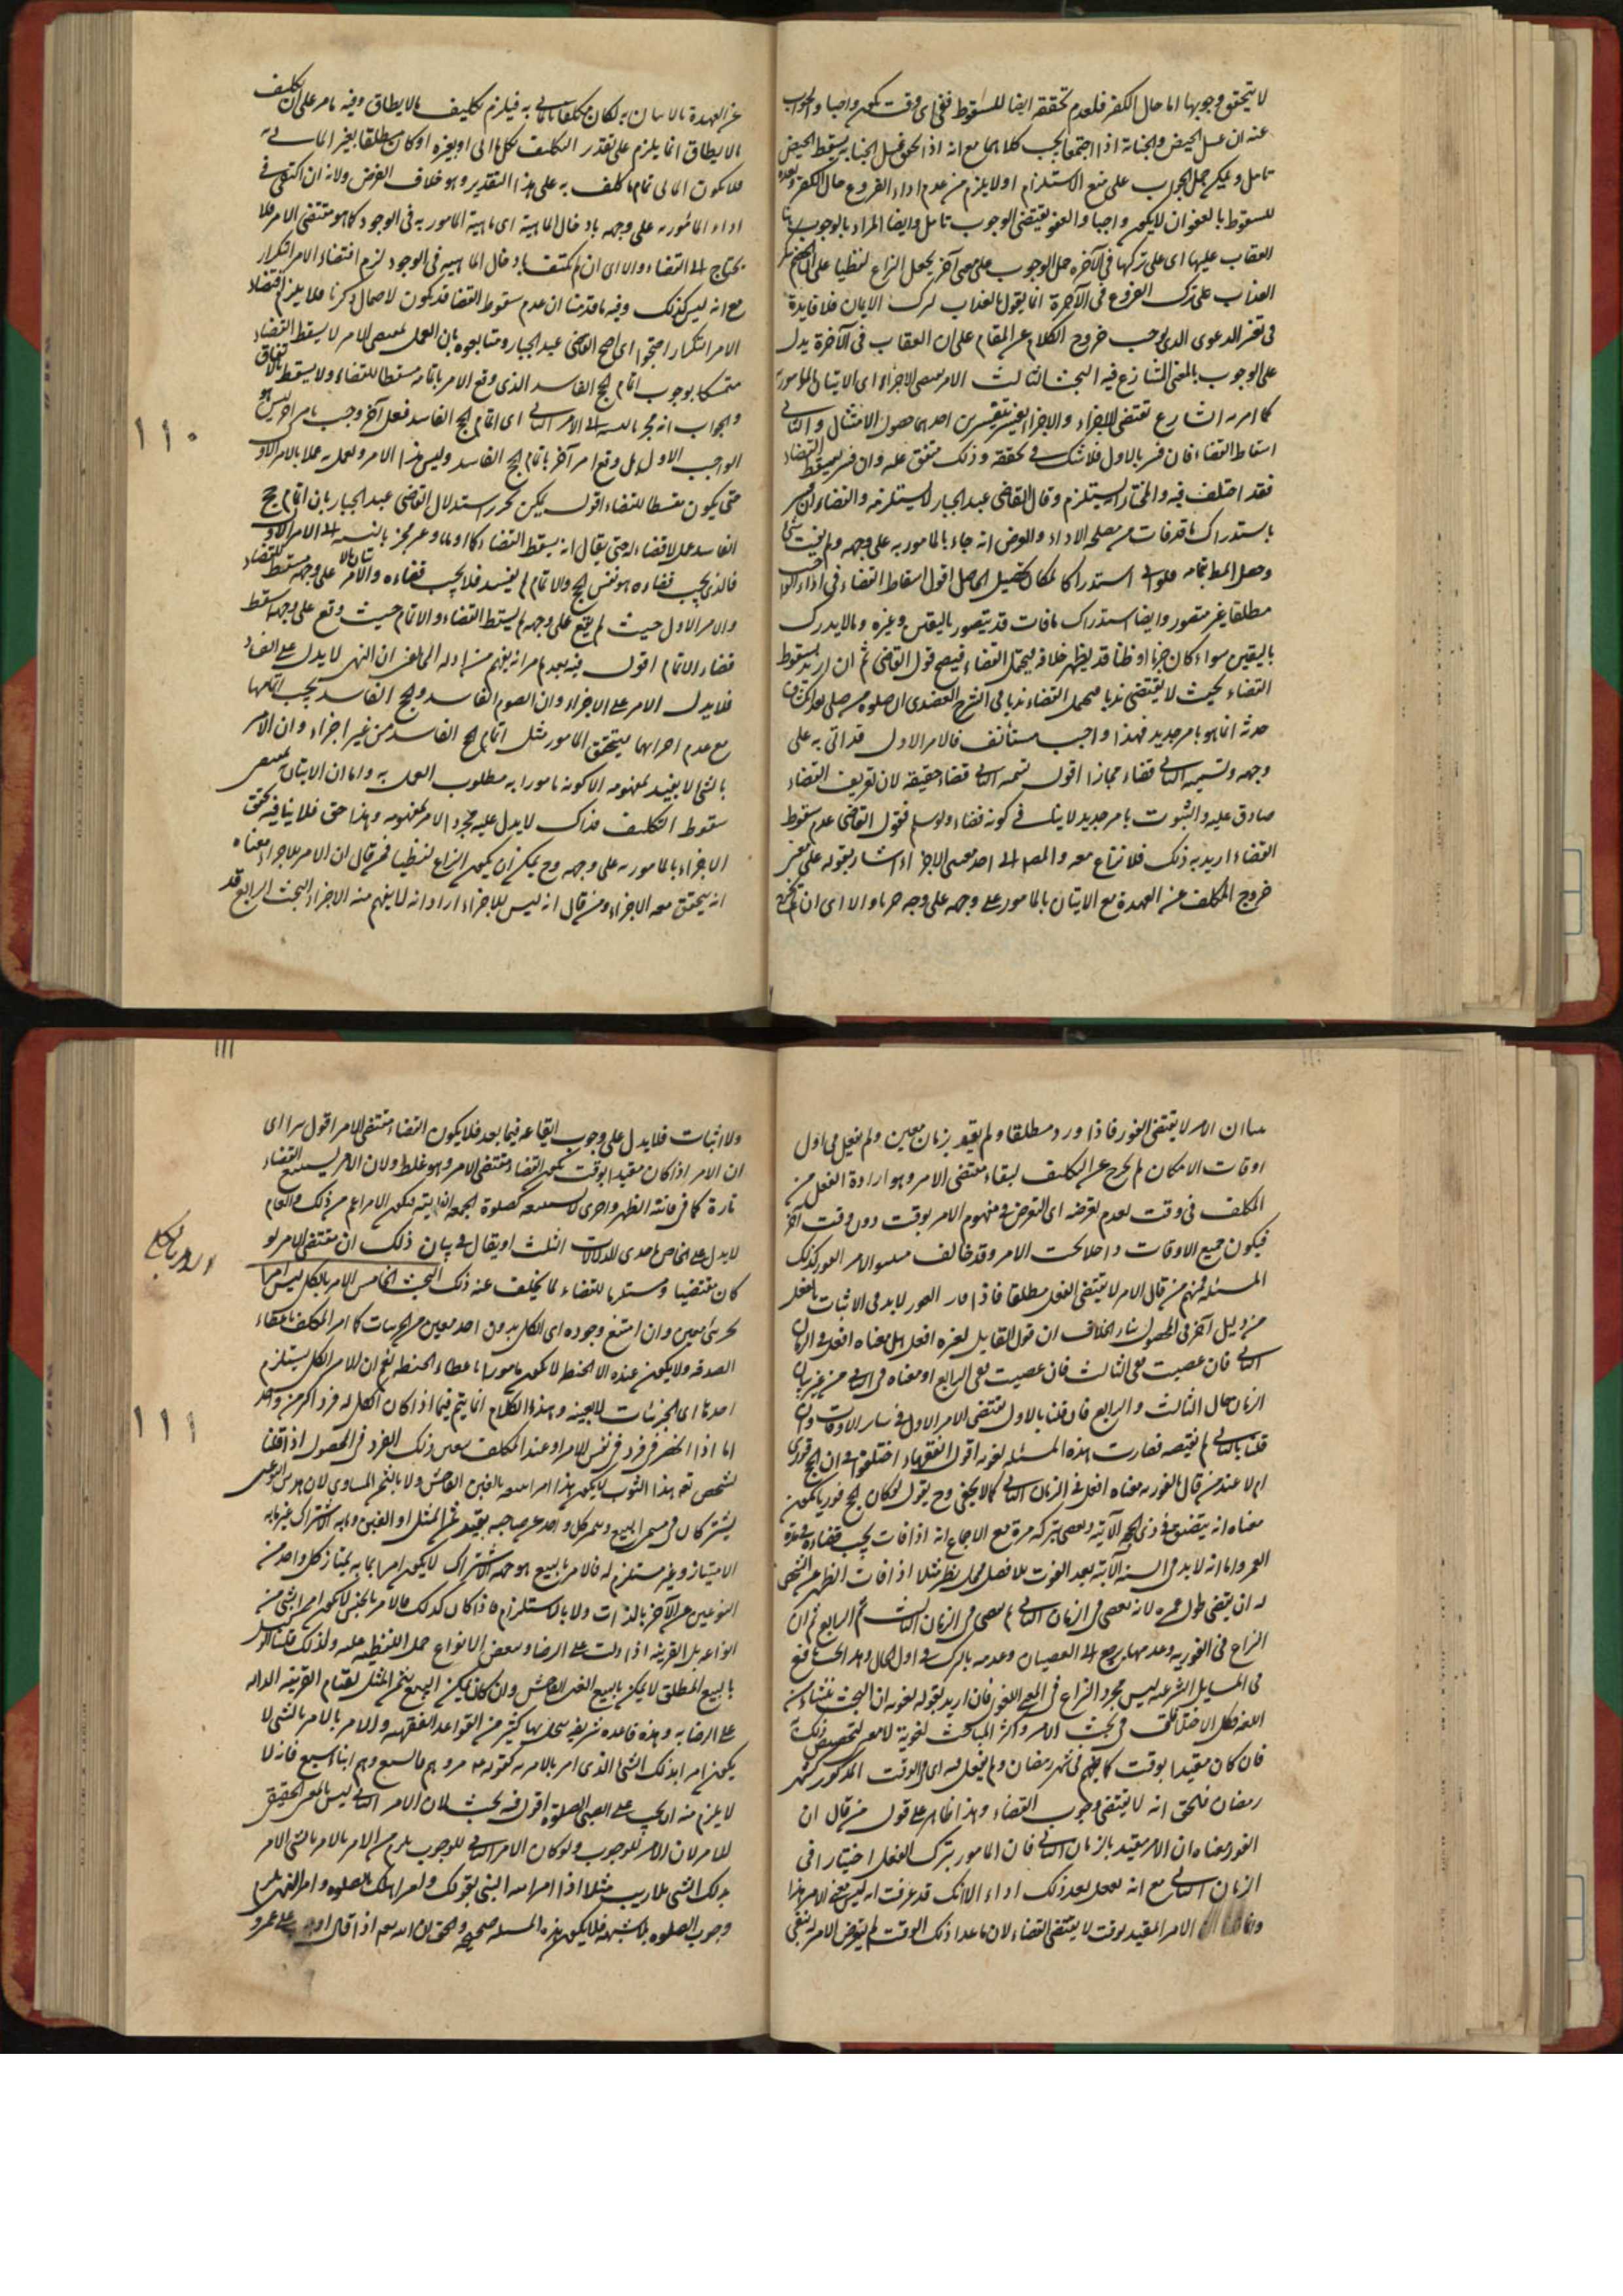 لا يتحقق وجوبها اما حال الكفر فلعدم تحققه ايضا للسقوط ففى اى وقت يكون واجبا والجواب
عنه ان غسل الحيض والجنابة اذا اجتمعا يجب كلاهما مع انه اذا لحق قبل الجنابة يسقط الحيض
تامل ويمكن حمل الجواب على منع الاستلزام اولا يلزم من عدم اداء الفروع حال الكفر وبعده
للسقوط بالعفو ان لا يكون واجبا والعفو يقتضى الوجوب تامل وايضا المراد بالوجوب
العقاب عليها اى على تركها فى الآخرة حمل الوجوب على معنى آخر يجعل النزاع لفظيا على ان الخصم
العذاب على ترك الفروع فى الآخرة انما يقول بالعذاب لترك الايمان فلا فايدة
فى تغير الدعوى الذى يوجب خروج الكلام عن المقام على ان العقاب فى الآخرة يدل
على الوجوب بالمعنى المتنازع فيه البحث الثالث الامر يقتضى الاجزاء اى الاتيان بالمأمور به
كما امر به الشارع تقتضى الاجزاء والاجزاء يفسر بتفسيرين احدهما حصول الامتثال والثانى
اسقاط القضاء فان فسر بالاول فلا شك فى تحققه وذلك متفق عليه وان فسر بسقوط القضاء
فقد اختلف فيه والمختار انه يستلزم وقال القاضى عبد الجبار لا يستلزمه والقضاء ان فسر
باستدراك ما قد فات من مصلحة الاداء والفرض انه جاء بالمامور به على وجهه ولم يفت شئ
وحصل المط بتمامه فلو اتى استدراكا لكان تحصيل الحاصل اقول اسقاط القضاء فى اداء الواجب
مطلقا غير متصور وايضا استدراك ما فات قد يتصور باليقين وغيره وما لا يدرك
باليقين سواء كان جزما او ظنا قد يظهر خلافه فيحتمل القضاء فيصح قول القاضى ثم ان اريد بسقوط
القضاء بحيث لا يقتضى ندبا فيحتمل القضاء ندبا فى الشرح العضدى ان صلوة من صلى بعد
حدثه انما هو بامر جديد فهذا واجب مستأنف فالامر الاول قد اتى به على
وجهه وتسمية الثانى قضاء مجازا اقول تسمية الثانى قضاء حقيقة لان تعريف القضاء
صادق عليه والثبوت بامر جديد لا ينافى كونه قضاء ولو سلم فقول القاضى عدم سقوط
القضاء اريد به ذلك فلا نزاع معه والمص الى احد معنيى الاجزاء اشار بقوله على معنى
خروج المكلف عن العهدة مع الاتيان بالمامور على وجهه والا اى ان لم يخرج
عن العهدة بالاتيان به لكان مكلفا بما اتى به فيلزم تكليف ما لا يطاق وفيه ما مر على ان تكليف
ما لا يطاق انما يلزم على تقدير التكليف بكل ما اتى او بغيره او كان مطلقا بغير المأتى به
فلا يكون المأتى تمام ما كلف به على هذا التقدير وهو خلاف الفرض ولانه ان اكتفى فى
اداء المأمور به على وجهه بادخال الماهية اى ماهية المامور به فى الوجود كما هو مقتضى الامر فلا
يحتاج الى القضاء والا اى ان لم يكتف بادخال الماهية فى الوجود لزم اقتضاء الامر التكرار
مع انه ليس كذلك وفيه ما قدمنا ان عدم سقوط القضا قد يكون لاحتمال ذكرنا فلا يلزم اقتضاء
الامر التكرار احتجوا اى احتج القاضى عبد الجبار ومتابعوه بان العمل بمقتضى الامر لا يسقط القضاء
متمسكا بوجوب اتمام الحج الفاسد الذى وقع الامر باتمامه مسقطا للقضاء ولا يسقط بالاتفاق
والجواب انه مجز بالنسبة الى الامر الثانى اى اتمام الحج الفاسد فعل آخر وجب بامر آخر ليس هو
الواجب الاول بل وقع امر آخر باتمام الحج الفاسد وليس هذا الامر والعمل به عملا بالامر الاول
حتى يكون مسقطا للقضاء اقول يمكن تحرير استدلال القاضى عبد الجبار بان اتمام حج
الفاسد عمل لا قضاء له حتى يقال انه يسقط القضاء كما اولها وغير مجز بالنسبة الى الامر الاول
فالذى يجب قضاءه هو نفس الحج والاتمام لم يفسد فلا يجب قضاءه والامر على وجهه مسقط للقضاء
والامر الاول حيث لم يقع على وجهه لم يسقط القضاء والاتمام حيث وقع على وجهه اسقط
قضاء الاتمام اقول فيه بعد ما مر انه يفهم من ادلة الى نفس ان النهى لا يدل على الفساد
فلا يدل الامر على الاجزاء وان الصوم الفاسد والحج الفاسد يجب اتمامها
مع عدم اجزائها فيتحقق المامور مثل اتمام الحج الفاسد من غير اجزاء وان الامر
بالشئ لا يفيد بمفهومه الا كونه مامورا به مطلوب العمل به واما ان الاتيان يقتضى
سقوط التكليف فذاك لا يدل عليه مجرد الامر بمفهومه وهذا حق فلا ينافيه تحقق
الاجزاء بالمامور به على وجهه وح يمكن ان يكون النزاع لفظيا فمن قال ان الامر للاجزاء معناه
انه يتحقق معه الاجزاء ومن قال انه ليس للاجزاء اراد انه لا يفهم منه الاجزاء البحث الرابع قد
١١٠
بينا ان الامر لا يقتضى الفور فاذا ورد مطلقا ولم يقيد بزمان معين ولم يفعل فى اول
اوقات الامكان لم يخرج عن التكليف لبقاء مقتضى الامر وهو ارادة الفعل من
المكلف فى وقت لعدم تعرضه اى التعرض فى مفهوم الامر بوقت دون وقت آخر
فيكون جميع الاوقات داخلا تحت الامر وقد خالف مثبتوا الامر الفور كذلك
المسئلة فمنهم من قال الامر لا يقتضى الفعل مطلقا فاذا فات الفور لا بد فى الاثبات بالفعل
من دليل آخر فى المحصول منشا الخلاف ان قول القايل لغيره افعل هل معناه افعل فى الزمان
الثانى فان عصيت ففى الثالث فان عصيت ففى الرابع او معناه فى الثانى من غير بيان
الزمان حال الثالث والرابع فان قلنا بالاول اقتضى الامر الاول فى ساير الاوقات وان
قلنا بالثانى لم يقتضه فصارت هذه المسئلة لغوية اقول الفقهاء اختلفوا فى ان الحج فورى
ام لا عند من قال بالفور معناه افعل فى الزمان الثانى كما لا يخفى وح يقول لو كان الحج فوريا يكون
معناه انه يتضيق فى ذى الحجة الآتية ويعصى بتركه مرة مع الاجماع انه اذا فات يجب قضاءه فى مدة
العمر واما انه لا بد فى السنة الآتية بعد الفوت بلا فصل فمحل نظر مثلا اذا فات الظهر عن الشخص
له ان يقضى طول عمره لانه يعصى فى الزمان الثانى ثم يعصى فى الزمان الثالث ثم الرابع ثم ان
النزاع فى الفورية وعدمها يرجع الى العصيان وعدمه بالترك فى اول الحال وهذا البحث نافع
فى المسايل الشرعية ليس مجرد النزاع فى المعنى اللغوى فان اريد بقوله لغوية ان البحث منشاءه من
اللغة فكل الاختلاف فى بحث الامر واكثر المباحث لغوية لا معنى لتخصيص ذلك به
فان كان مقيدا بوقت كما صم فى شهر رمضان ولم يفعل فيه اى فى الوقت المذكور كشهر
رمضان فالحق انه لا يقتضى وجوب القضاء وهذا ظاهر على قول من قال ان
الفور معناه ان الامر مقيد بالزمان الثانى فان المامور بترك الفعل اختيارا فى
الزمان الثانى مع انه يفعل بعد ذلك اداء الا انك قد عرفت انه ليس معنى الامر هذا
وانما الامر المقيد بوقت لا يقتضى القضاء لان ما عدا ذلك الوقت لم يتعرض الامر له بنفى
ولا اثبات فلا يدل على وجوب ايقاعه فيما بعد فلا يكون القضاء مقتضى الامر اقول مر اى
ان الامر اذا كان مقيدا بوقت يكون القضاء مقتضى الامر وهو غلط ولان الامر يستتبع القضاء
تارة كما فى فائتة الظهر واخرى لا يستتبعه كصلوة الجمعة الفايتة فيكون الامر اعم من ذلك والعام
لا يدل على الخاص باحدى الدلالات الثلث او يقال فى بيان ذلك ان مقتضى الامر لو
كان مقتضيا ومستلزما للقضاء لما يخلف عنه ذلك البحث الخامس الامر بالكلى ليس امرا
بجزئى معين وان امتنع وجوده اى الكلى بدون احد معين من الجزئيات كما امر المكلف باعطاء
الصدقة ولا يكون عنده الا الحنطة لا يكون مامورا باعطاء الحنطة نعم ان الامر الكلى يستلزم
احدها اى الجزئيات لا بعينه وهذا الكلام انما يتم فيما اذا كان الكلى له فرد اكثر من واحد
اما اذا انحصر فى فرد فى نفس الامر او عند المكلف يتعين ذلك الفرد فى الحصول اذا قلنا
لشخص بع هذا الثوب لا يكون هذا امرا ببيعه بالغبن الفاحش ولا بالثمن المساوى لان هذين النوعين
يشتركان فى مسمى البيع ويتميز كل واحد عن صاحبه بقيد ثمن المثل او الغبن وما به الاشتراك غير ما به
الامتياز وغير مستلزم له فالامر بالبيع هو جهة الاشتراك لا يكون امرا بما به يمتاز كل واحد من
النوعين عن الآخر بالذات ولا بالاستلزام فاذا كان كذلك فالامر بالجنس لا يكون امرا بشئ من
انواعه بل القرينة اذا دلت على الرضا ببعض الانواع حمل اللفظ عليه ولذلك قلنا الوكيل
بالبيع المطلق لا يملك البيع بالغبن الفاحش وان كان يملك البيع بثمن المثل لقيام القرينة الدالة
على الرضا به وهذه قاعدة شريفة ينحل بها كثير من القواعد الفقهية والامر بالامر بالشئ لا
يكون امرا بذلك الشئ الذى امر بالامر به كقوله ع مروهم بالصلوة وهم ابناء سبع فانه لا
لا يلزم منه ان يجب على الصبى الصلوة اقول فيه بحث لان الامر الثانى ليس بالمعنى الحقيقى
للامر لان الامر للوجوب ولو كان الامر الثانى للوجوب يلزم من الامر بالامر بالشئ الامر
بذلك الشئ بلا ريب مثلا اذا امر الله النبى بقوله وأمر اهلك بالصلوة وامر النبى يلزم
وجوب الصلوة بلا شبهة فلا يكون هذه المسئلة صحيحة والحق ان الله تعم اذا قال اوجب على عمرو
الامر بالكلى
١١١